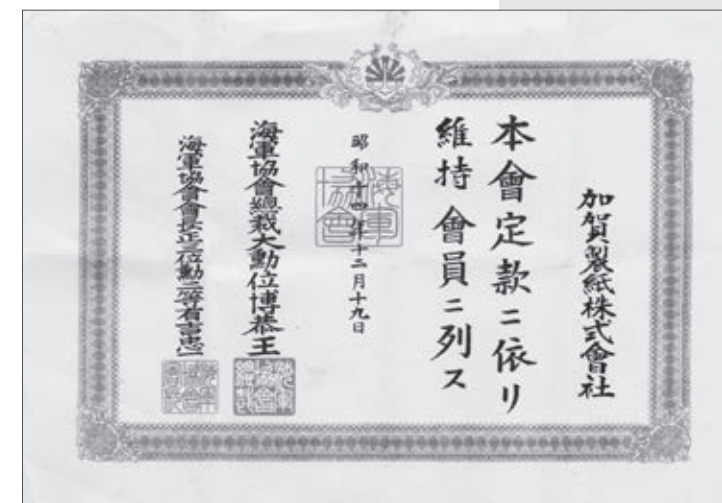 加賀製紙株式會社
本會定款ニ依リ
維持會員ニ列ス
昭和十四年十二月十九日
海軍協會
海軍協會總裁大勳位博恭王
海軍協會會長正三位勳二等有吉忠一